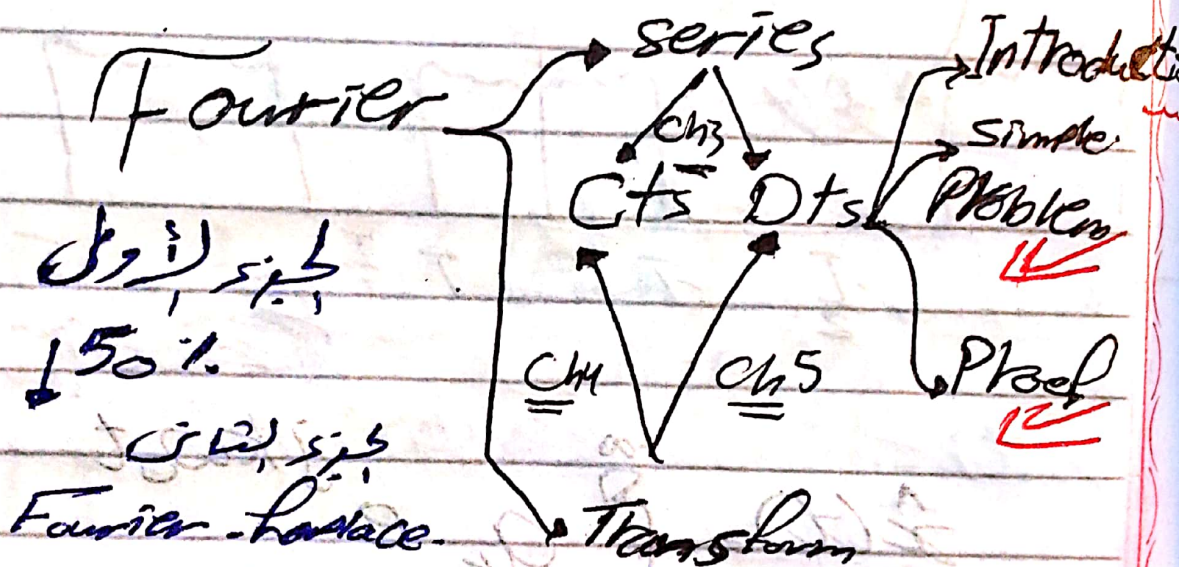 Fourier
series
ch3
Cts Dts
Introducti
simple
Problem
Proof
Ch4
Ch5
Transform
الجزء الأول
50%
الجزء الثاني
Fourier - Laplace